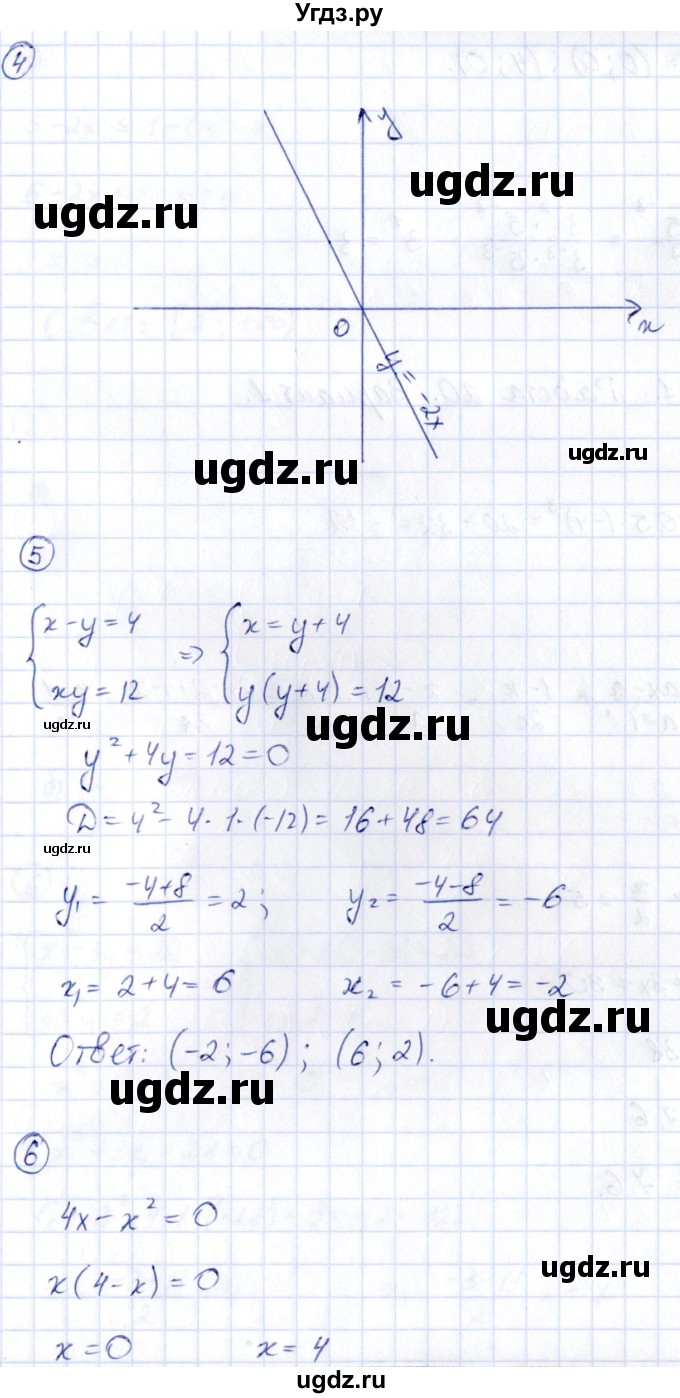 Угдз.ру
4
y
ugdz.ru
ugdz.ru
0
x
y = -2x
ugdz.ru
ugdz.ru
5
{ x - y = 4 => { x = y + 4
{ xy = 12 { y(y + 4) = 12
ugdz.ru
ugdz.ru
y² + 4y = 12 = 0
Д = 4² - 4 · 1 · (-12) = 16 + 48 = 64
ugdz.ru
y₁ = (-4+8)/2 = 2; y₂ = (-4-8)/2 = -6
x₁ = 2 + 4 = 6 x₂ = -6 + 4 = -2
ugdz.ru
Ответ: (-2; -6); (6; 2).
ugdz.ru
6
4x - x² = 0
x(4 - x) = 0
ugdz.ru
x = 0 x = 4
ugdz.ru